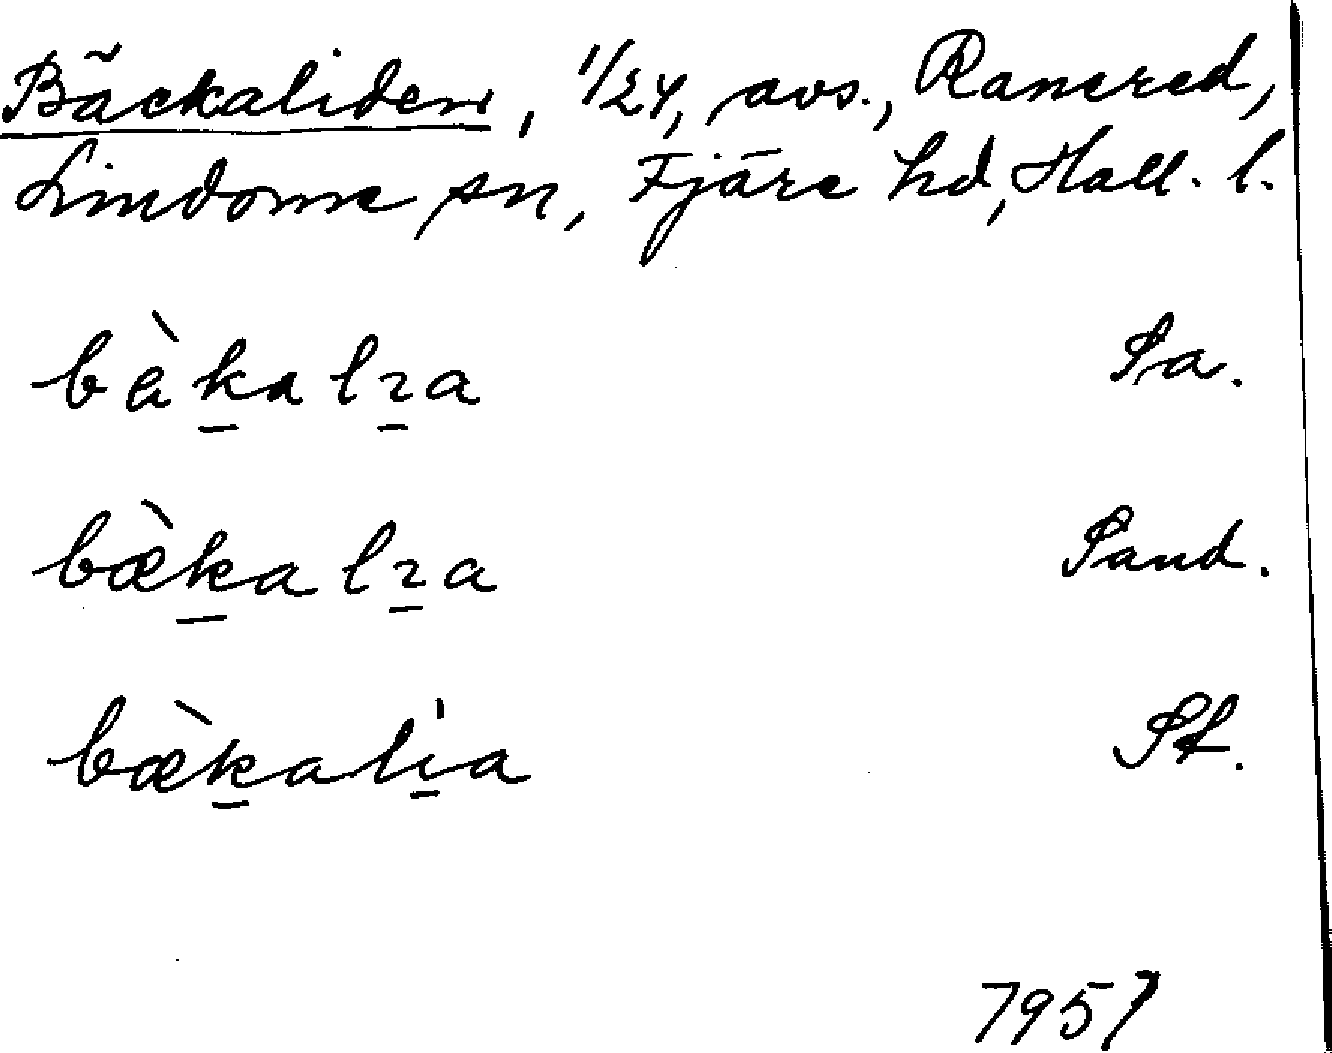 Bäckaliden, 1/24, avs., Ranered,
Lindome sn, Fjäre hd, Hall. l.
bàka lɩa Sa.
bæ̀ka lɩa Sand.
bæ̀kalia St.
7957